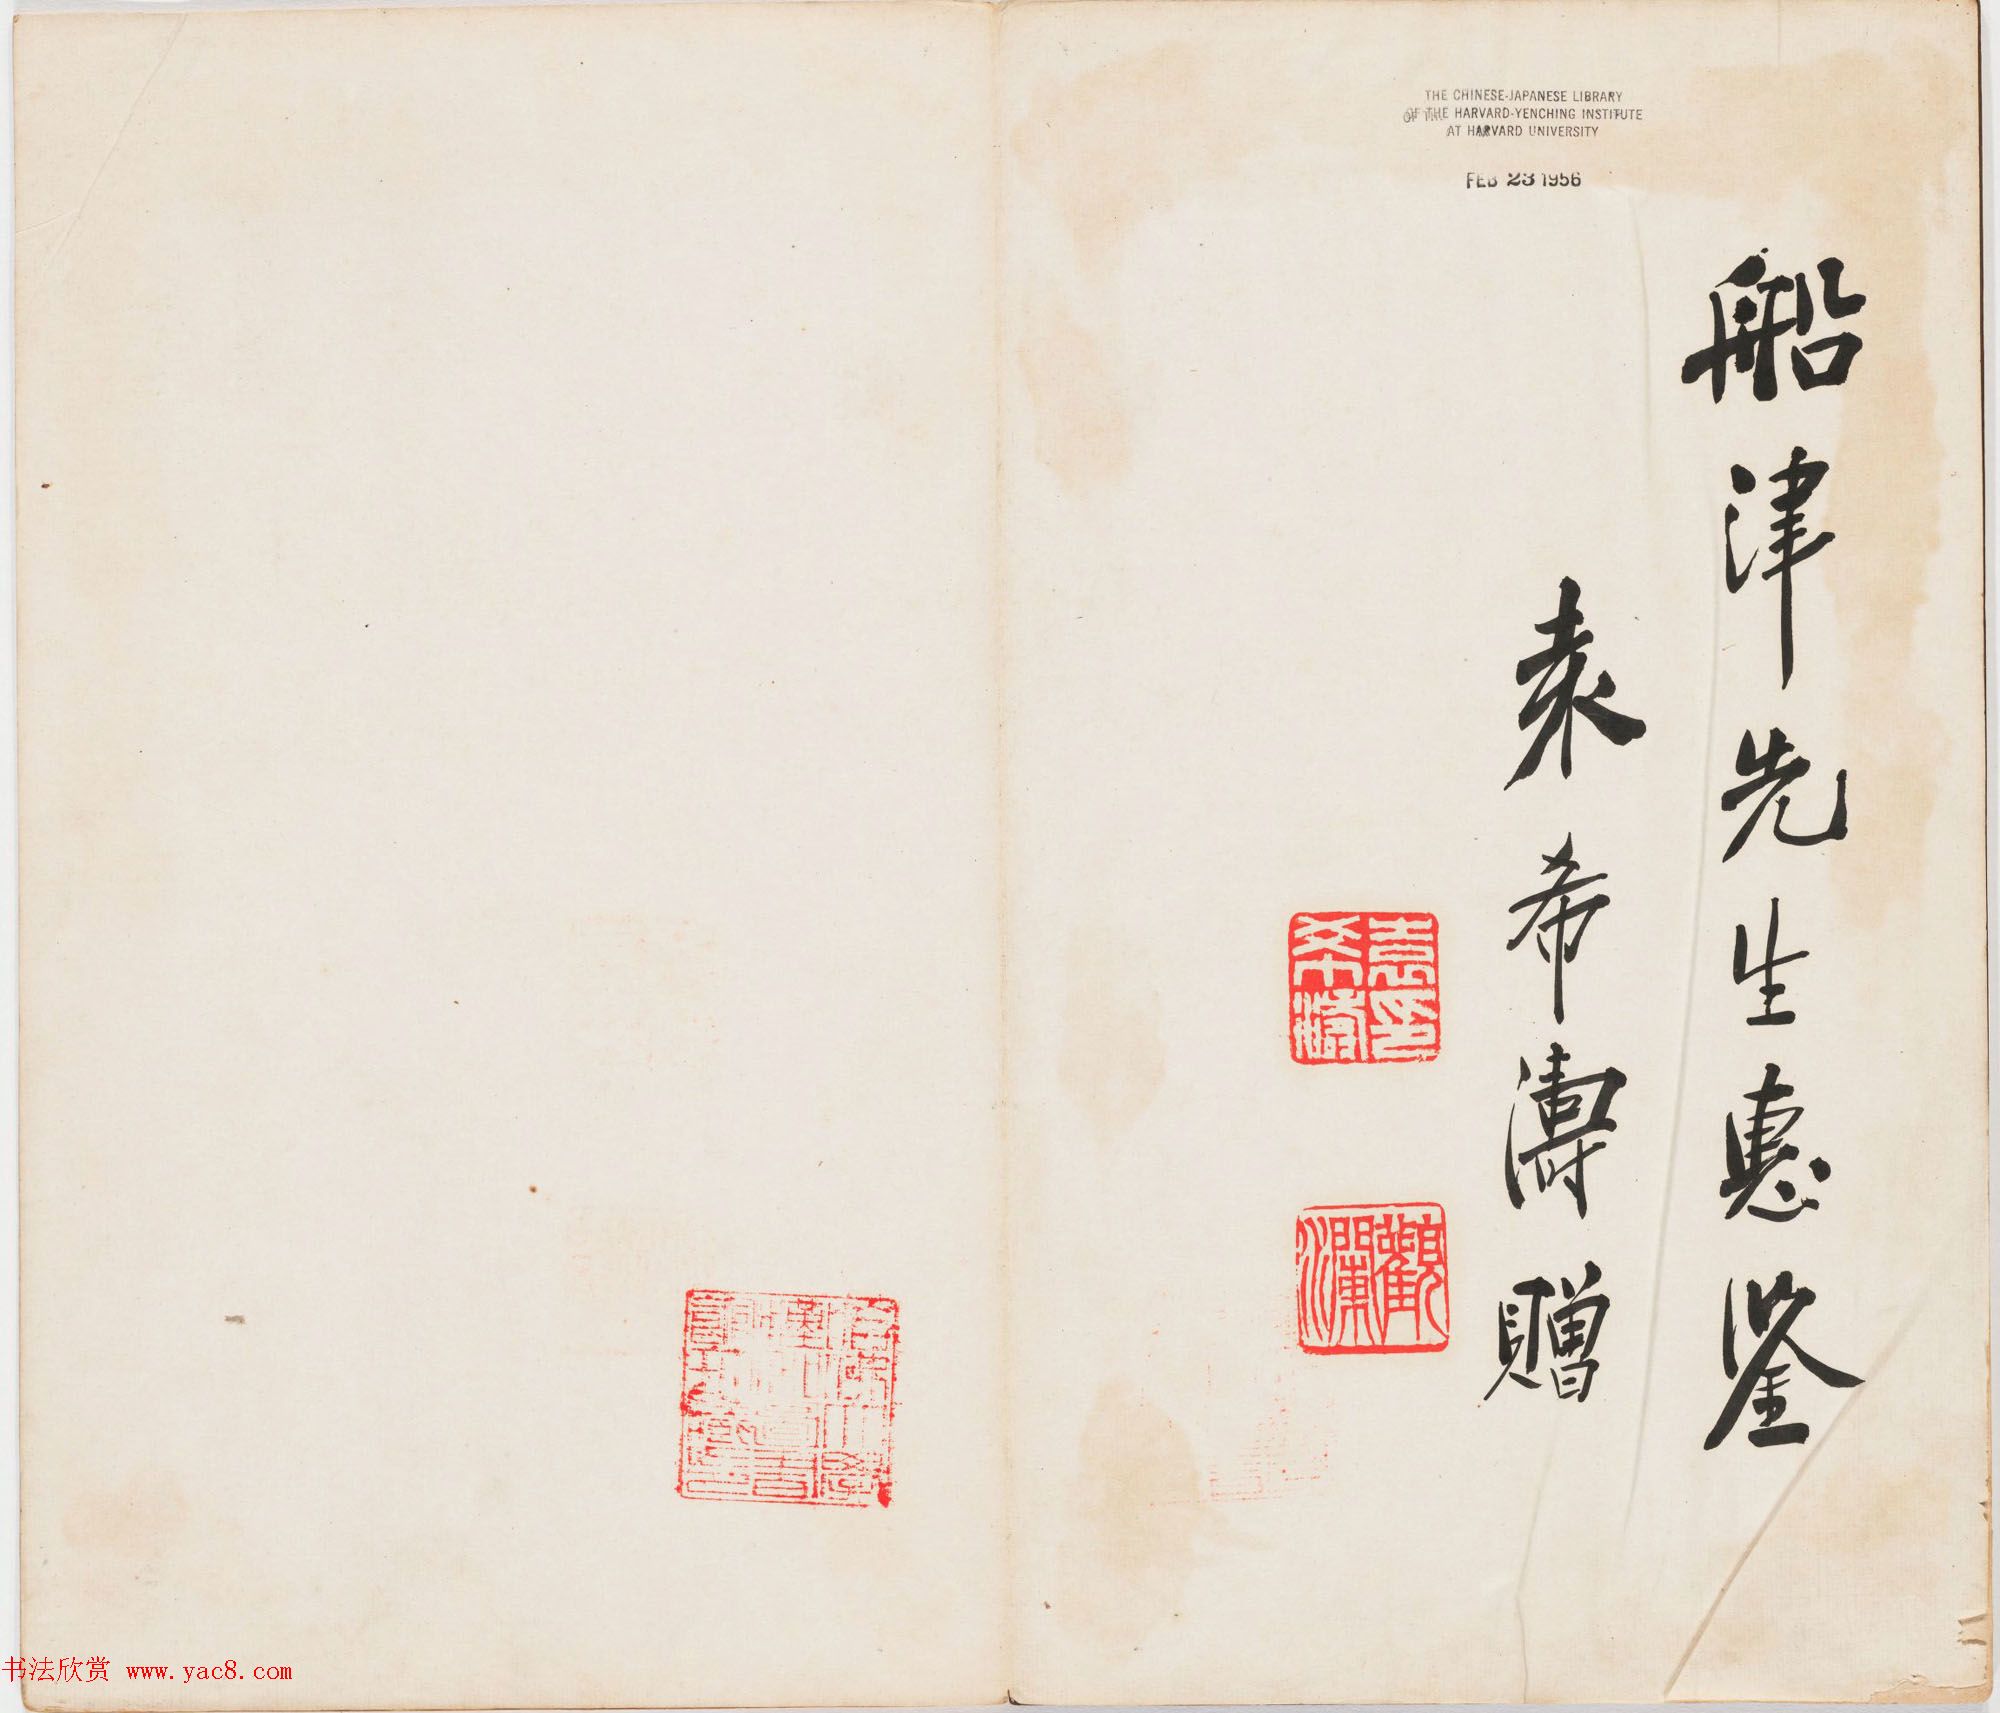 THE CHINESE-JAPANESE LIBRARY
OF THE HARVARD-YENCHING INSTITUTE
AT HARVARD UNIVERSITY
FEB 23 1956
船津先生惠鋻
袁希濤贈
袁印希濤
觀瀾
书法欣赏 www.yac8.com